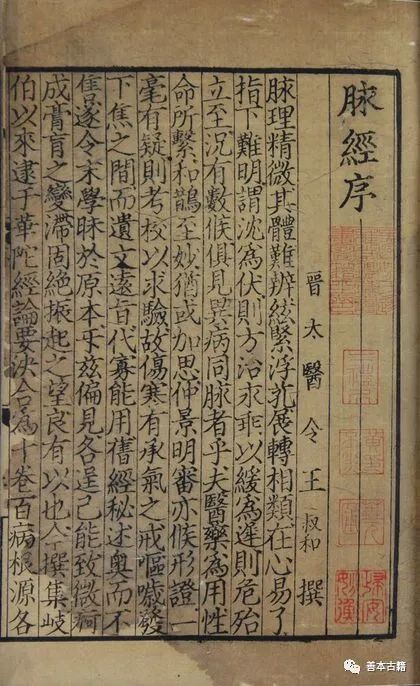 脉經序
晉太醫令王叔和撰
脉理精微其體難辨絃緊浮芤展轉相類在心易了
指下難明謂沈為伏則方治永乖以緩為遲則危殆
立至況有數候俱見異病同脉者乎夫醫藥為用性
命所繫和鵲至妙猶或加思仲景明審亦候形證一
毫有疑則考校以求驗故傷寒有承氣之戒嘔噦發
下焦之間而遺文遠旨代寡能用舊經秘述奧而不
售遂令末學昧於原本斥茲偏見各逞己能致微痾
成膏肓之變滯固絕振起之望良有以也今撰集歧
伯以來逮于華陀經論要決合為十卷百病根源各
善本古籍